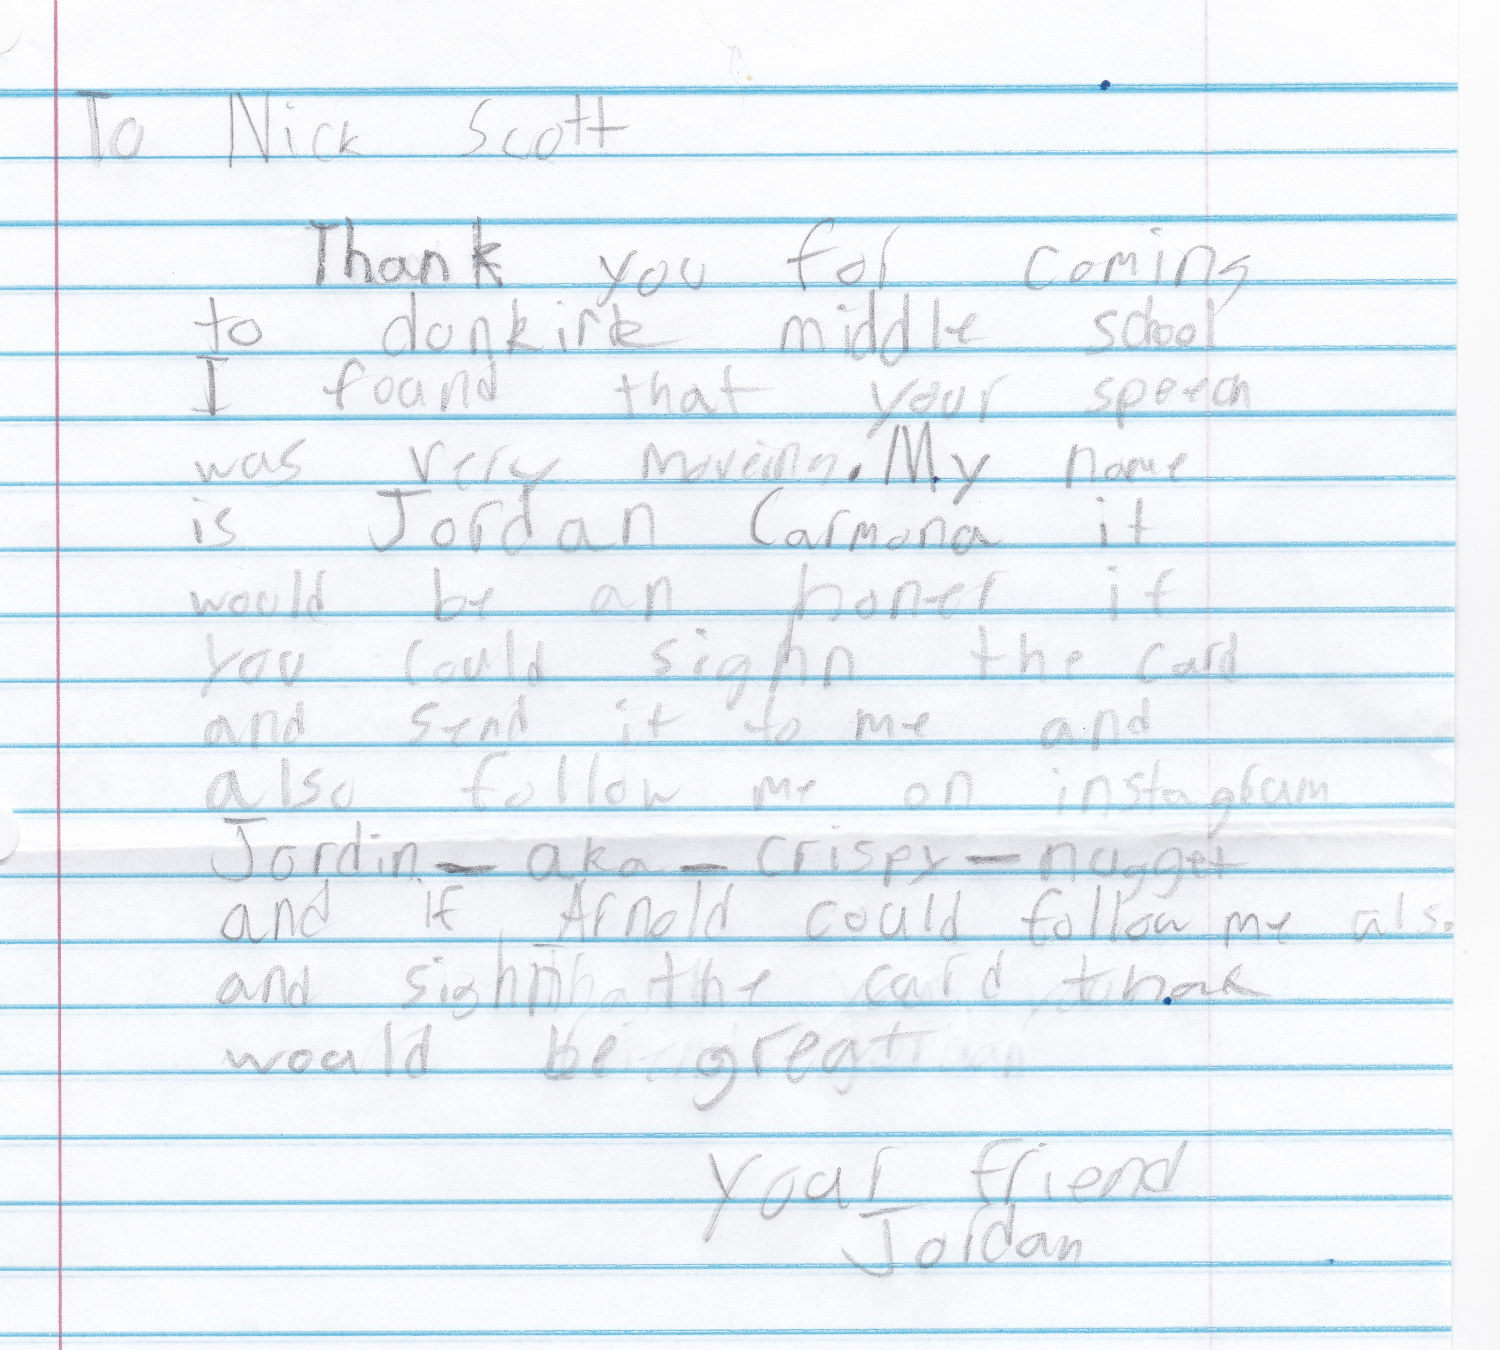 To Nick Scott
Thank you for coming
to donkirk middle school
I foand that your speech
was very moveing. My name
is Jordan Carmona it
would be an honer if
you could sighn the card
and send it to me and
also follow me on instagram
Jordin - aka - crispy - nugget
and if Arnold could follow me also
and sighn the card
would be great
your friend
Jordan